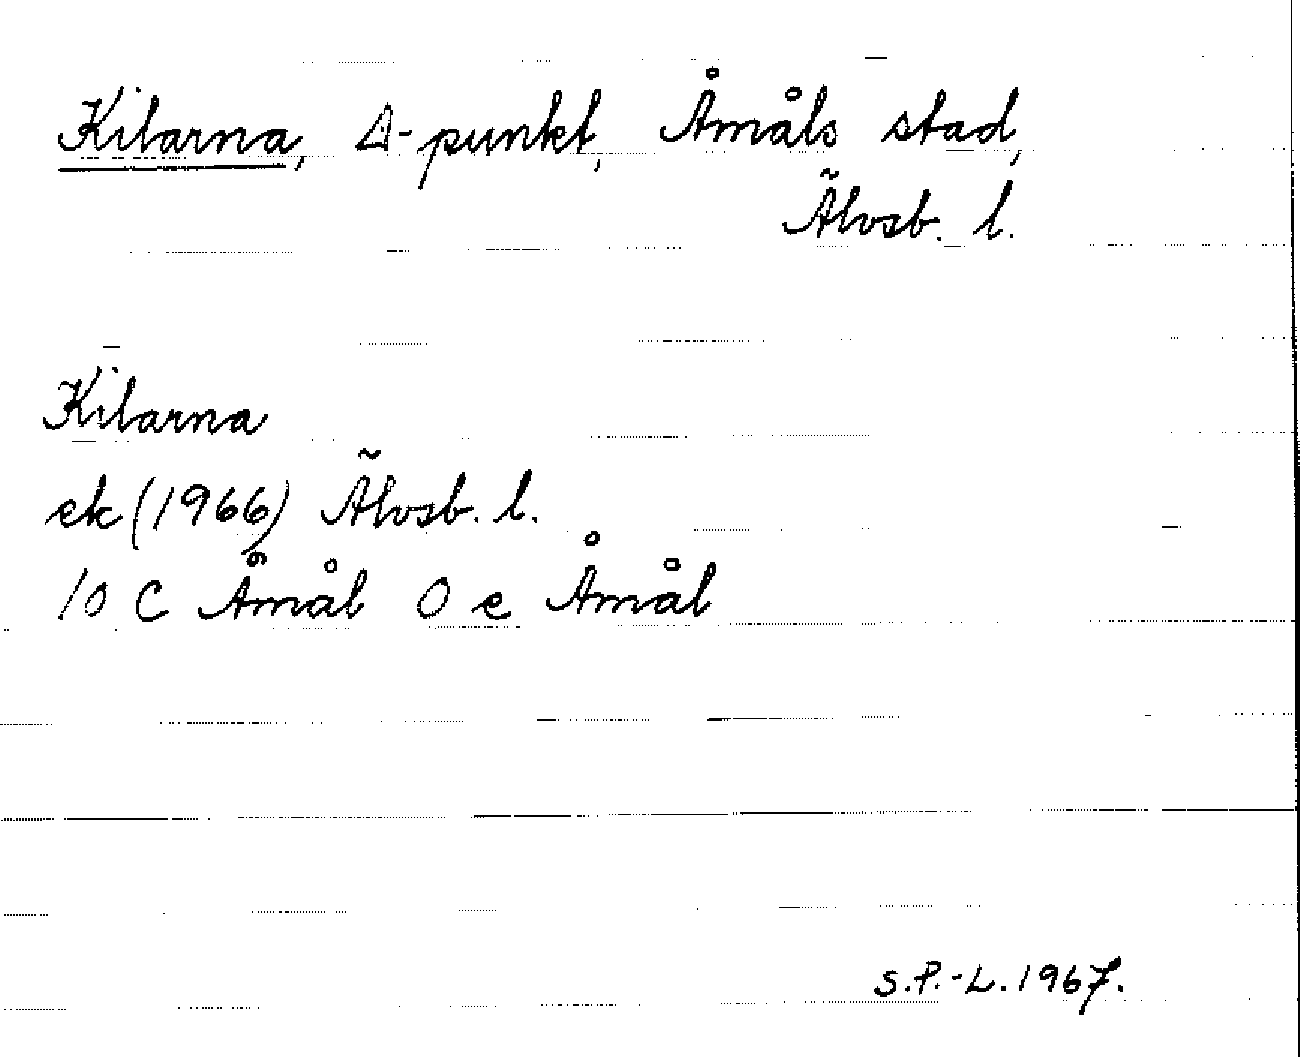 Kilarna, Δ-punkt, Åmåls stad,
Älvsb. l.
Kilarna
ek (1966) Älvsb. l.
10 C Åmål 0 e Åmål
S.P.-L. 1967.